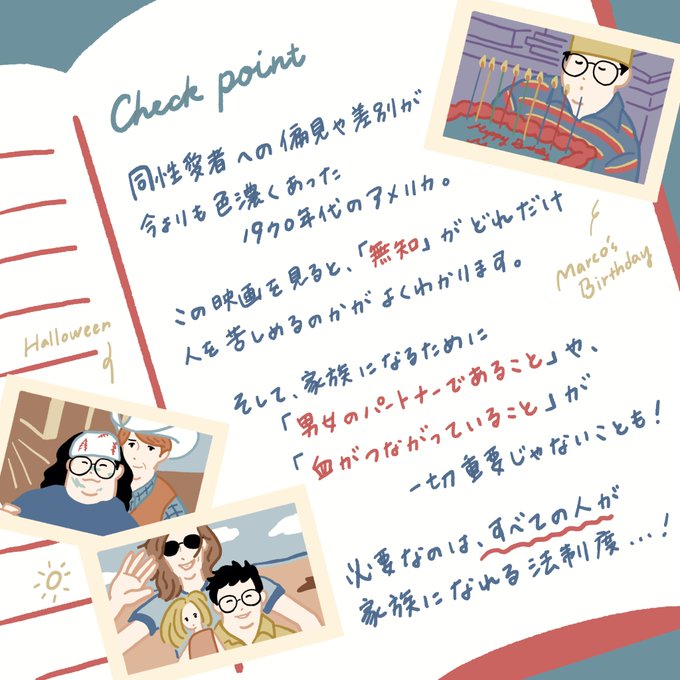 Check point
同性愛者への偏見や差別が
今よりも色濃くあった
1970年代のアメリカ。
この映画を見ると、「無知」がどれだけ
人を苦しめるのかがよくわかります。
そして、家族になるために
「男女のパートナーであること」や、
「血がつながっていること」が
一切重要じゃないことも！
必要なのは、すべての人が
家族になれる法制度…！
Marco's
Birthday
Halloween
Happy Birthday